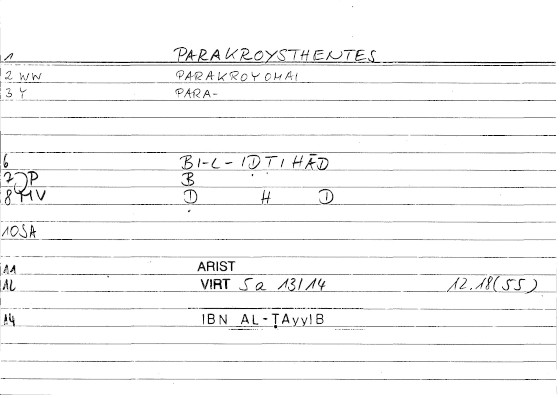 1 PARAKROYSTHENTES
2 WW PARAKROYOMAI
3 Y PARA-
6 BI-L-IḌṬIHĀD
7 P B
8 MV Ḍ H D
10 SA
11 ARIST
VIRT 5a 13/14 12.18(55)
14 IBN AL-ṬAyyIB